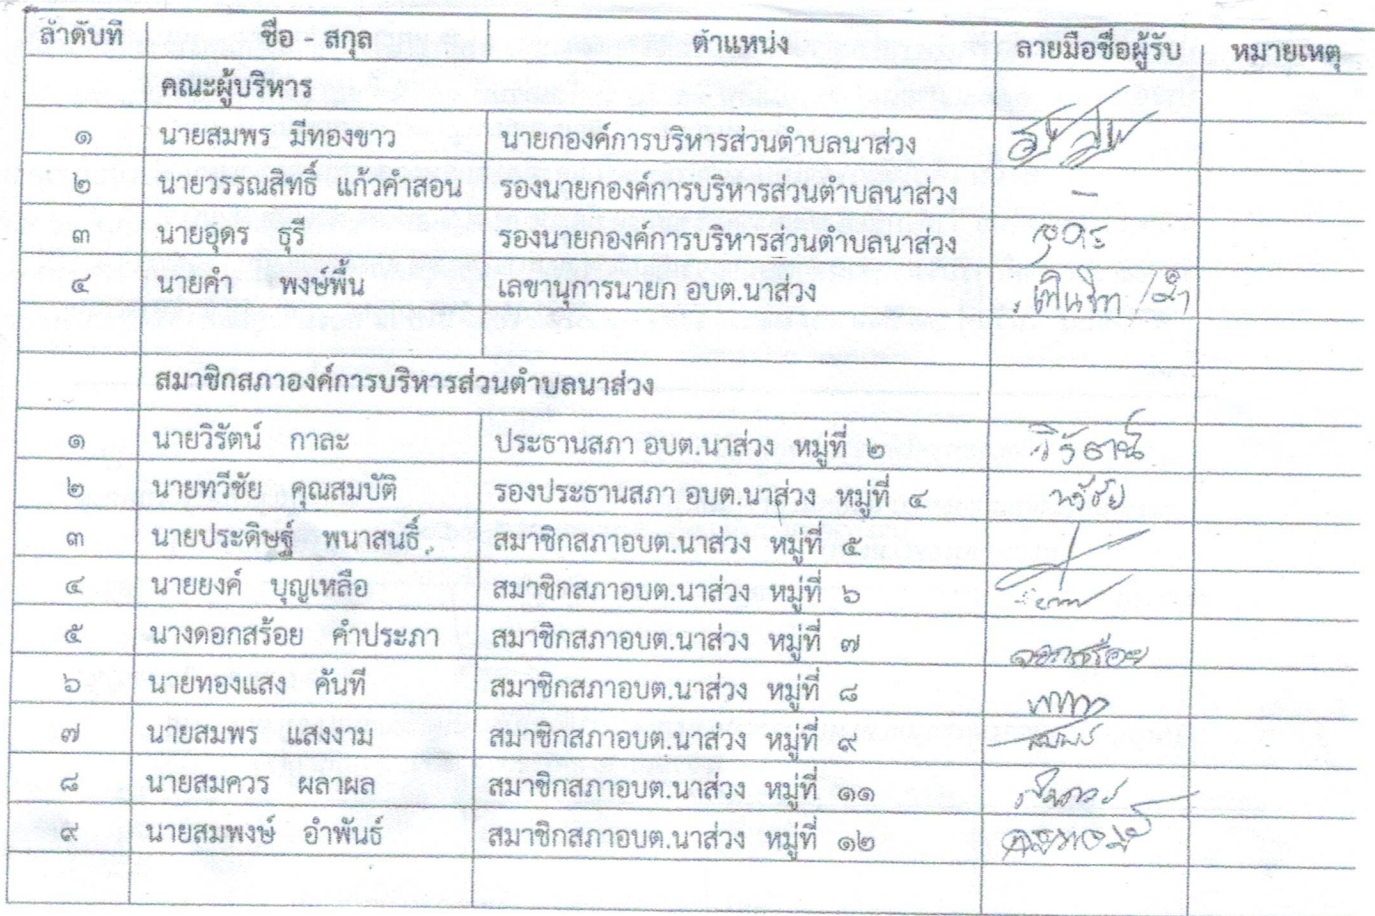 ลำดับที่ ชื่อ - สกุล ตำแหน่ง ลายมือชื่อผู้รับ หมายเหตุ
คณะผู้บริหาร
๑ นายสมพร มีทองขาว นายกองค์การบริหารส่วนตำบลนาส่วง
๒ นายวรรณสิทธิ์ แก้วคำสอน รองนายกองค์การบริหารส่วนตำบลนาส่วง -
๓ นายอุดร ธุรี รองนายกองค์การบริหารส่วนตำบลนาส่วง อุดร
๔ นายคำ พงษ์พื้น เลขานุการนายก อบต.นาส่วง
สมาชิกสภาองค์การบริหารส่วนตำบลนาส่วง
๑ นายวิรัตน์ กาละ ประธานสภา อบต.นาส่วง หมู่ที่ ๒ วิรัตน์
๒ นายทวีชัย คุณสมบัติ รองประธานสภา อบต.นาส่วง หมู่ที่ ๔ ทวีชัย
๓ นายประดิษฐ์ พนาสนธิ์ สมาชิกสภาอบต.นาส่วง หมู่ที่ ๕
๔ นายยงค์ บุญเหลือ สมาชิกสภาอบต.นาส่วง หมู่ที่ ๖
๕ นางดอกสร้อย คำประภา สมาชิกสภาอบต.นาส่วง หมู่ที่ ๗ ดอกสร้อย
๖ นายทองแสง ค้นที สมาชิกสภาอบต.นาส่วง หมู่ที่ ๘
๗ นายสมพร แสงงาม สมาชิกสภาอบต.นาส่วง หมู่ที่ ๙ สมพร
๘ นายสมควร ผลาผล สมาชิกสภาอบต.นาส่วง หมู่ที่ ๑๑
๙ นายสมพงษ์ อำพันธ์ สมาชิกสภาอบต.นาส่วง หมู่ที่ ๑๒